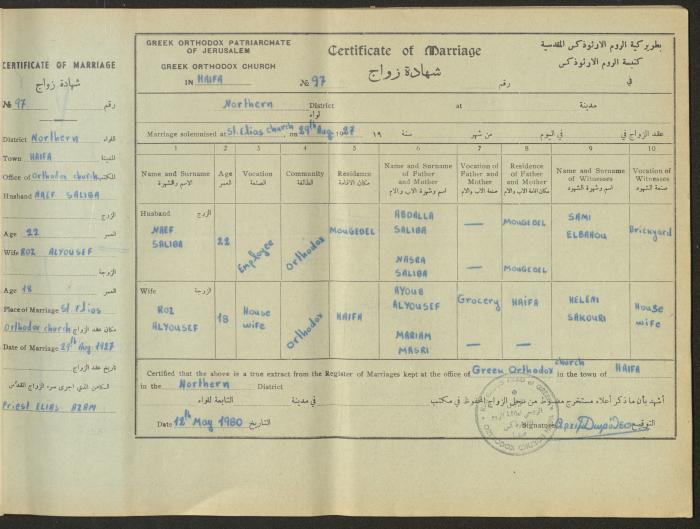 CERTIFICATE OF MARRIAGE
شهادة زواج
№ 97 رقم
District Northern اللواء
Town HAIFA المدينة
Office of Orthodox church المكتب
Husband NAEF SALIBA
الزوج
Age 22 العمر
Wife ROZ ALYOUSEF
الزوجة
Age 18 العمر
Place of Marriage St. Elios
Orthodox church مكان عقد الزواج
Date of Marriage 29th Aug. 1927
تاريخ عقد الزواج
الكاهن الذي اجرى سر الزواج المقدس
Priest ELIAS AZAM
GREEK ORTHODOX PATRIARCHATE
OF JERUSALEM
GREEK ORTHODOX CHURCH
IN HAIFA
Certificate of Marriage
شهادة زواج
№ 97 رقم
بطريركية الروم الارثوذكس المقدسية
كنيسة الروم الارثوذكس
في
Northern District at مدينة
لواء
Marriage solemnised at St. Elios church, on 29th Aug. 1927 19 سنة من شهر في اليوم عقد الزواج في
1 2 3 4 5 6 7 8 9 10
Name and Surname
الاسم والشهرة
Age
العمر
Vocation
الصنعة
Community
الطائفة
Residence
مكان الاقامة
Name and Surname
of Father
and Mother
اسم وشهرة الاب والام
Vocation of
Father and
Mother
صنعة الاب والام
Residence
of Father
and Mother
مكان اقامة الاب والام
Name and Surname
of Witnesses
اسم وشهرة الشهود
Vocation of
Witnesses
صنعة الشهود
Husband الزوج
NAEF
SALIBA
22
Employee
Orthodox
MOUGEDEL
ABDALLA
SALIBA
—
MOUGEDEL
NASRA
SALIBA
—
MOUGEDEL
SAMI
ELBAHOU
Brickyard
Wife الزوجة
ROZ
ALYOUSEF
18
House
wife
Orthodox
HAIFA
AYOUB
ALYOUSEF
Grocery
HAIFA
MARIAM
MASRI
—
—
HELENI
SAKOURI
House
wife
Certified that the above is a true extract from the Register of Marriages kept at the office of Greek Orthodox church in the town of HAIFA
in the Northern District
أشهد بأن ما ذكر أعلاه مستخرج مضبوط من سجل الزواج المحفوظ في مكتب
في مدينة التابعة للواء
Date 12th May 1980 التاريخ
Signature التوقيع